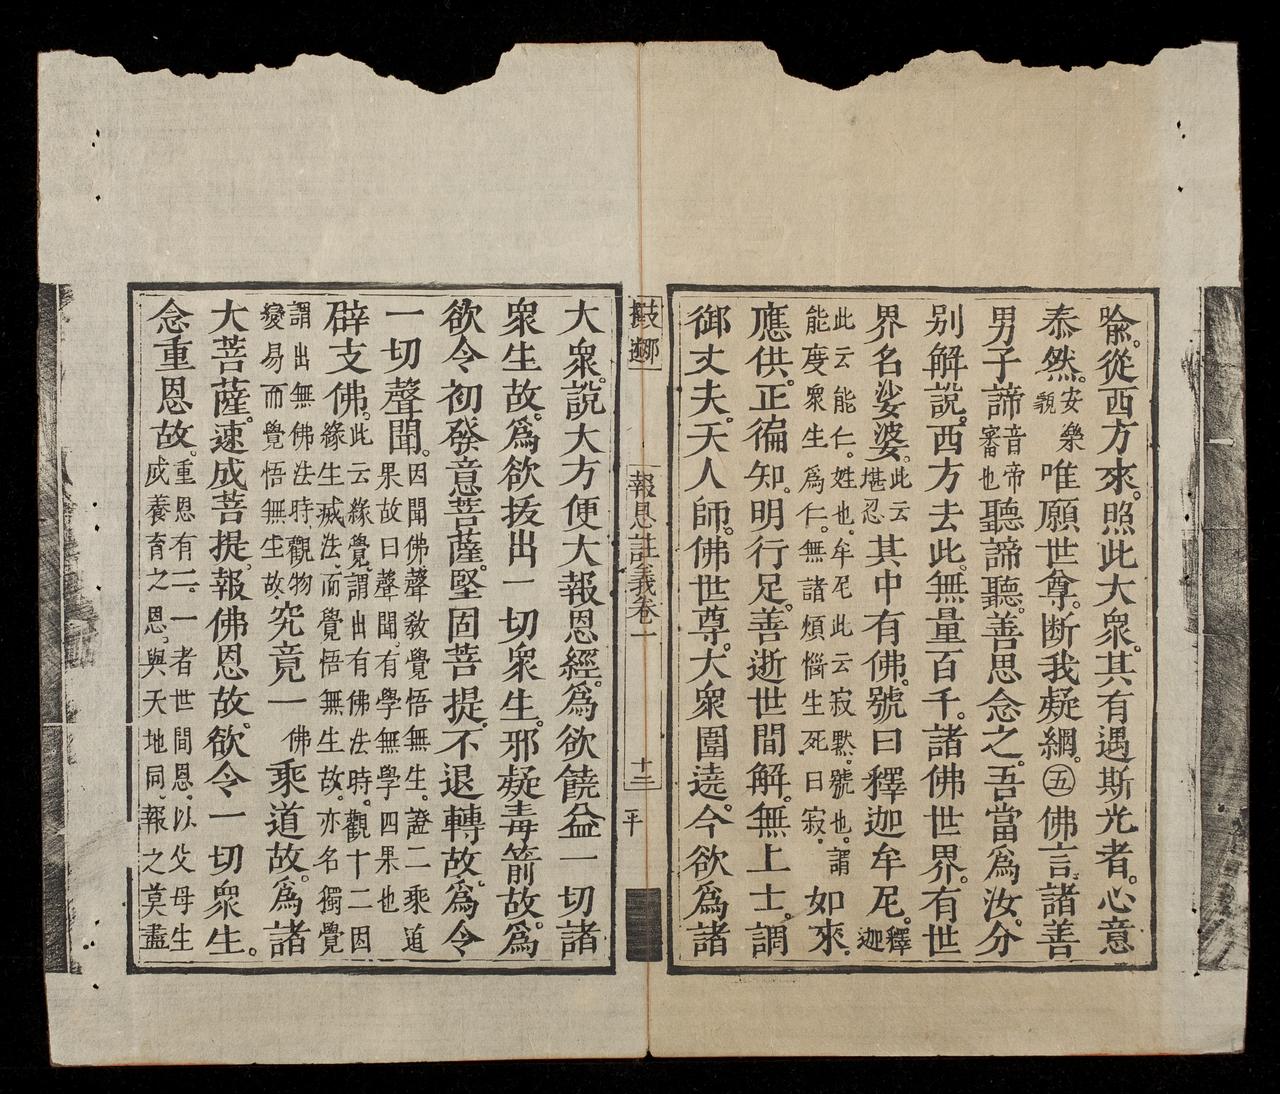 喻。從西方來。照此大衆。其有遇斯光者。心意
泰然。安樂貌唯願世尊。断我疑網。㊄佛言。諸善
男子諦音帝審也聽諦聽。善思念之。吾當為汝。分
別解説。西方去此。無量百千。諸佛世界。有世
界名娑婆。此云堪忍其中有佛。號曰釋迦牟尼。釋迦
此云能仁。姓也。牟尼此云寂默。號也。謂
能度衆生為仁。無諸煩惱生死。曰寂。如來。
應供。正徧知。明行足。善逝世間解。無上士。調
御丈夫。天人師。佛世尊。大衆圍遶。今欲為諸
報恩註義卷一
十二
平
大衆。説大方便大報恩經。為欲饒益一切諸
衆生故。為欲拔出一切衆生。邪疑毒箭故。為
欲令初發意菩薩。堅固菩提。不退轉故。為令
一切聲聞。因聞佛聲教覺悟無生。證二乘道
果故曰聲聞。有學無學四果也
辟支佛。此云緣覺。謂出有佛法時。觀十二因
緣生滅法。而覺悟無生故。亦名獨覺
謂出無佛法時。觀物
變易而覺悟無生故。究竟一佛乘道故。為諸
大菩薩。速成菩提。報佛恩故。欲令一切衆生。
念重恩故。重恩有二。一者世間恩。以父母生
成養育之恩。與天地同。報之莫盡